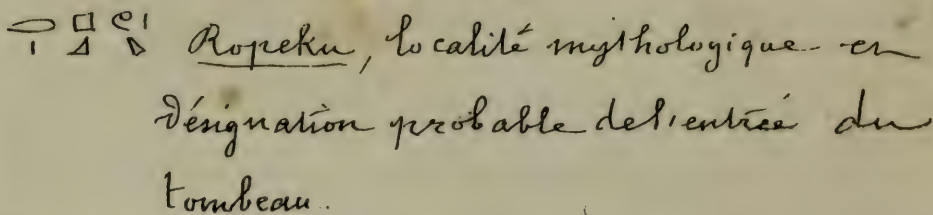 Ropeku, localité mythologique en
désignation probable de l'entrée du
tombeau.